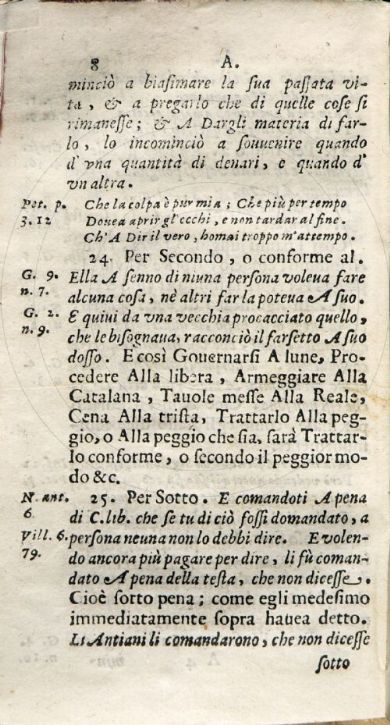 8 A.
minciò a biasimare la sua passata vi-
ta, & a pregarlo che di quelle cose si
rimanesse; & A Dargli materia di far-
lo, lo incominciò a souuenire quando
d' vna quantità di denari, e quando d'
vn altra.
Pet. p. Che la colpa è pur mia; Che più per tempo
3. 12 Douea aprir gl' occhi, e non tardar al fine.
Ch' A Dir il vero, homai troppo m' attempo.
24. Per Secondo, o conforme al.
G. 9. Ella A senno di niuna persona voleua fare
n. 7. alcuna cosa, nè altri far la poteua A suo.
G. 2. E quiui da vna vecchia procacciato quello,
n. 9. che le bisognaua, racconciò il farsetto A suo
dosso. E così Gouernarsi A lune, Pro-
cedere Alla libera, Armeggiare Alla
Catalana, Tauole messe Alla Reale,
Cena Alla trista, Trattarlo Alla peg-
gio, o Alla peggio che sia, sarà Trattar-
lo conforme, o secondo il peggior mo-
do &c.
N. ant. 25. Per Sotto. E comandoti A pena
6 di C. lib. che se tu di ciò fossi domandato, a
Vill. 6. persona neuna non lo debbi dire. E volen-
79. do ancora più pagare per dire, li fù coman-
dato A pena della testa, che non dicesse.
Cioè sotto pena; come egli medesimo
immediatamente sopra haueua detto.
Li Antiani li comandarono, che non dicesse
sotto